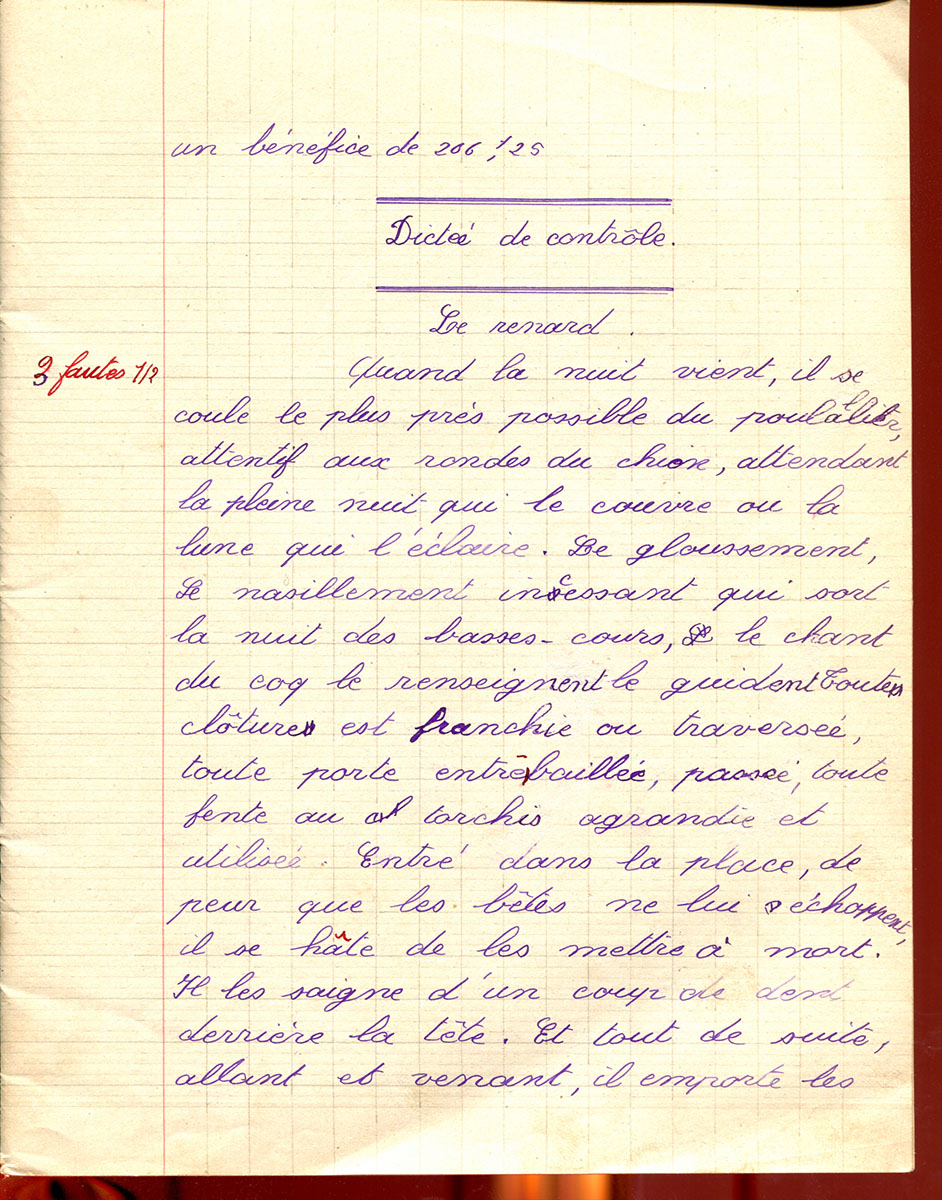 un bénéfice de 206,25
Dicteé de contrôle.
Le renard.
3 fautes 1/2
Quand la nuit vient, il se
coule le plus près possible du
attentif aux rondes du chien, attendant
la pleine nuit qui le couvre ou la
lune qui l'éclaire. Le gloussement,
Le nasillement incessant qui sort
la nuit des basses-cours, le chant
du coq le renseignent le guident Toute
clôture est franchie ou traverseé,
toute porte entrebailleé, passeé, toute
fente au torchis agrandie et
utiliseé. Entré dans la place, de
peur que les bêtes ne lui échappent,
il se hâte de les mettre à mort.
Il les saigne d'un coup de dent
derrière la tête. Et tout de suite,
allant et venant, il emporte les